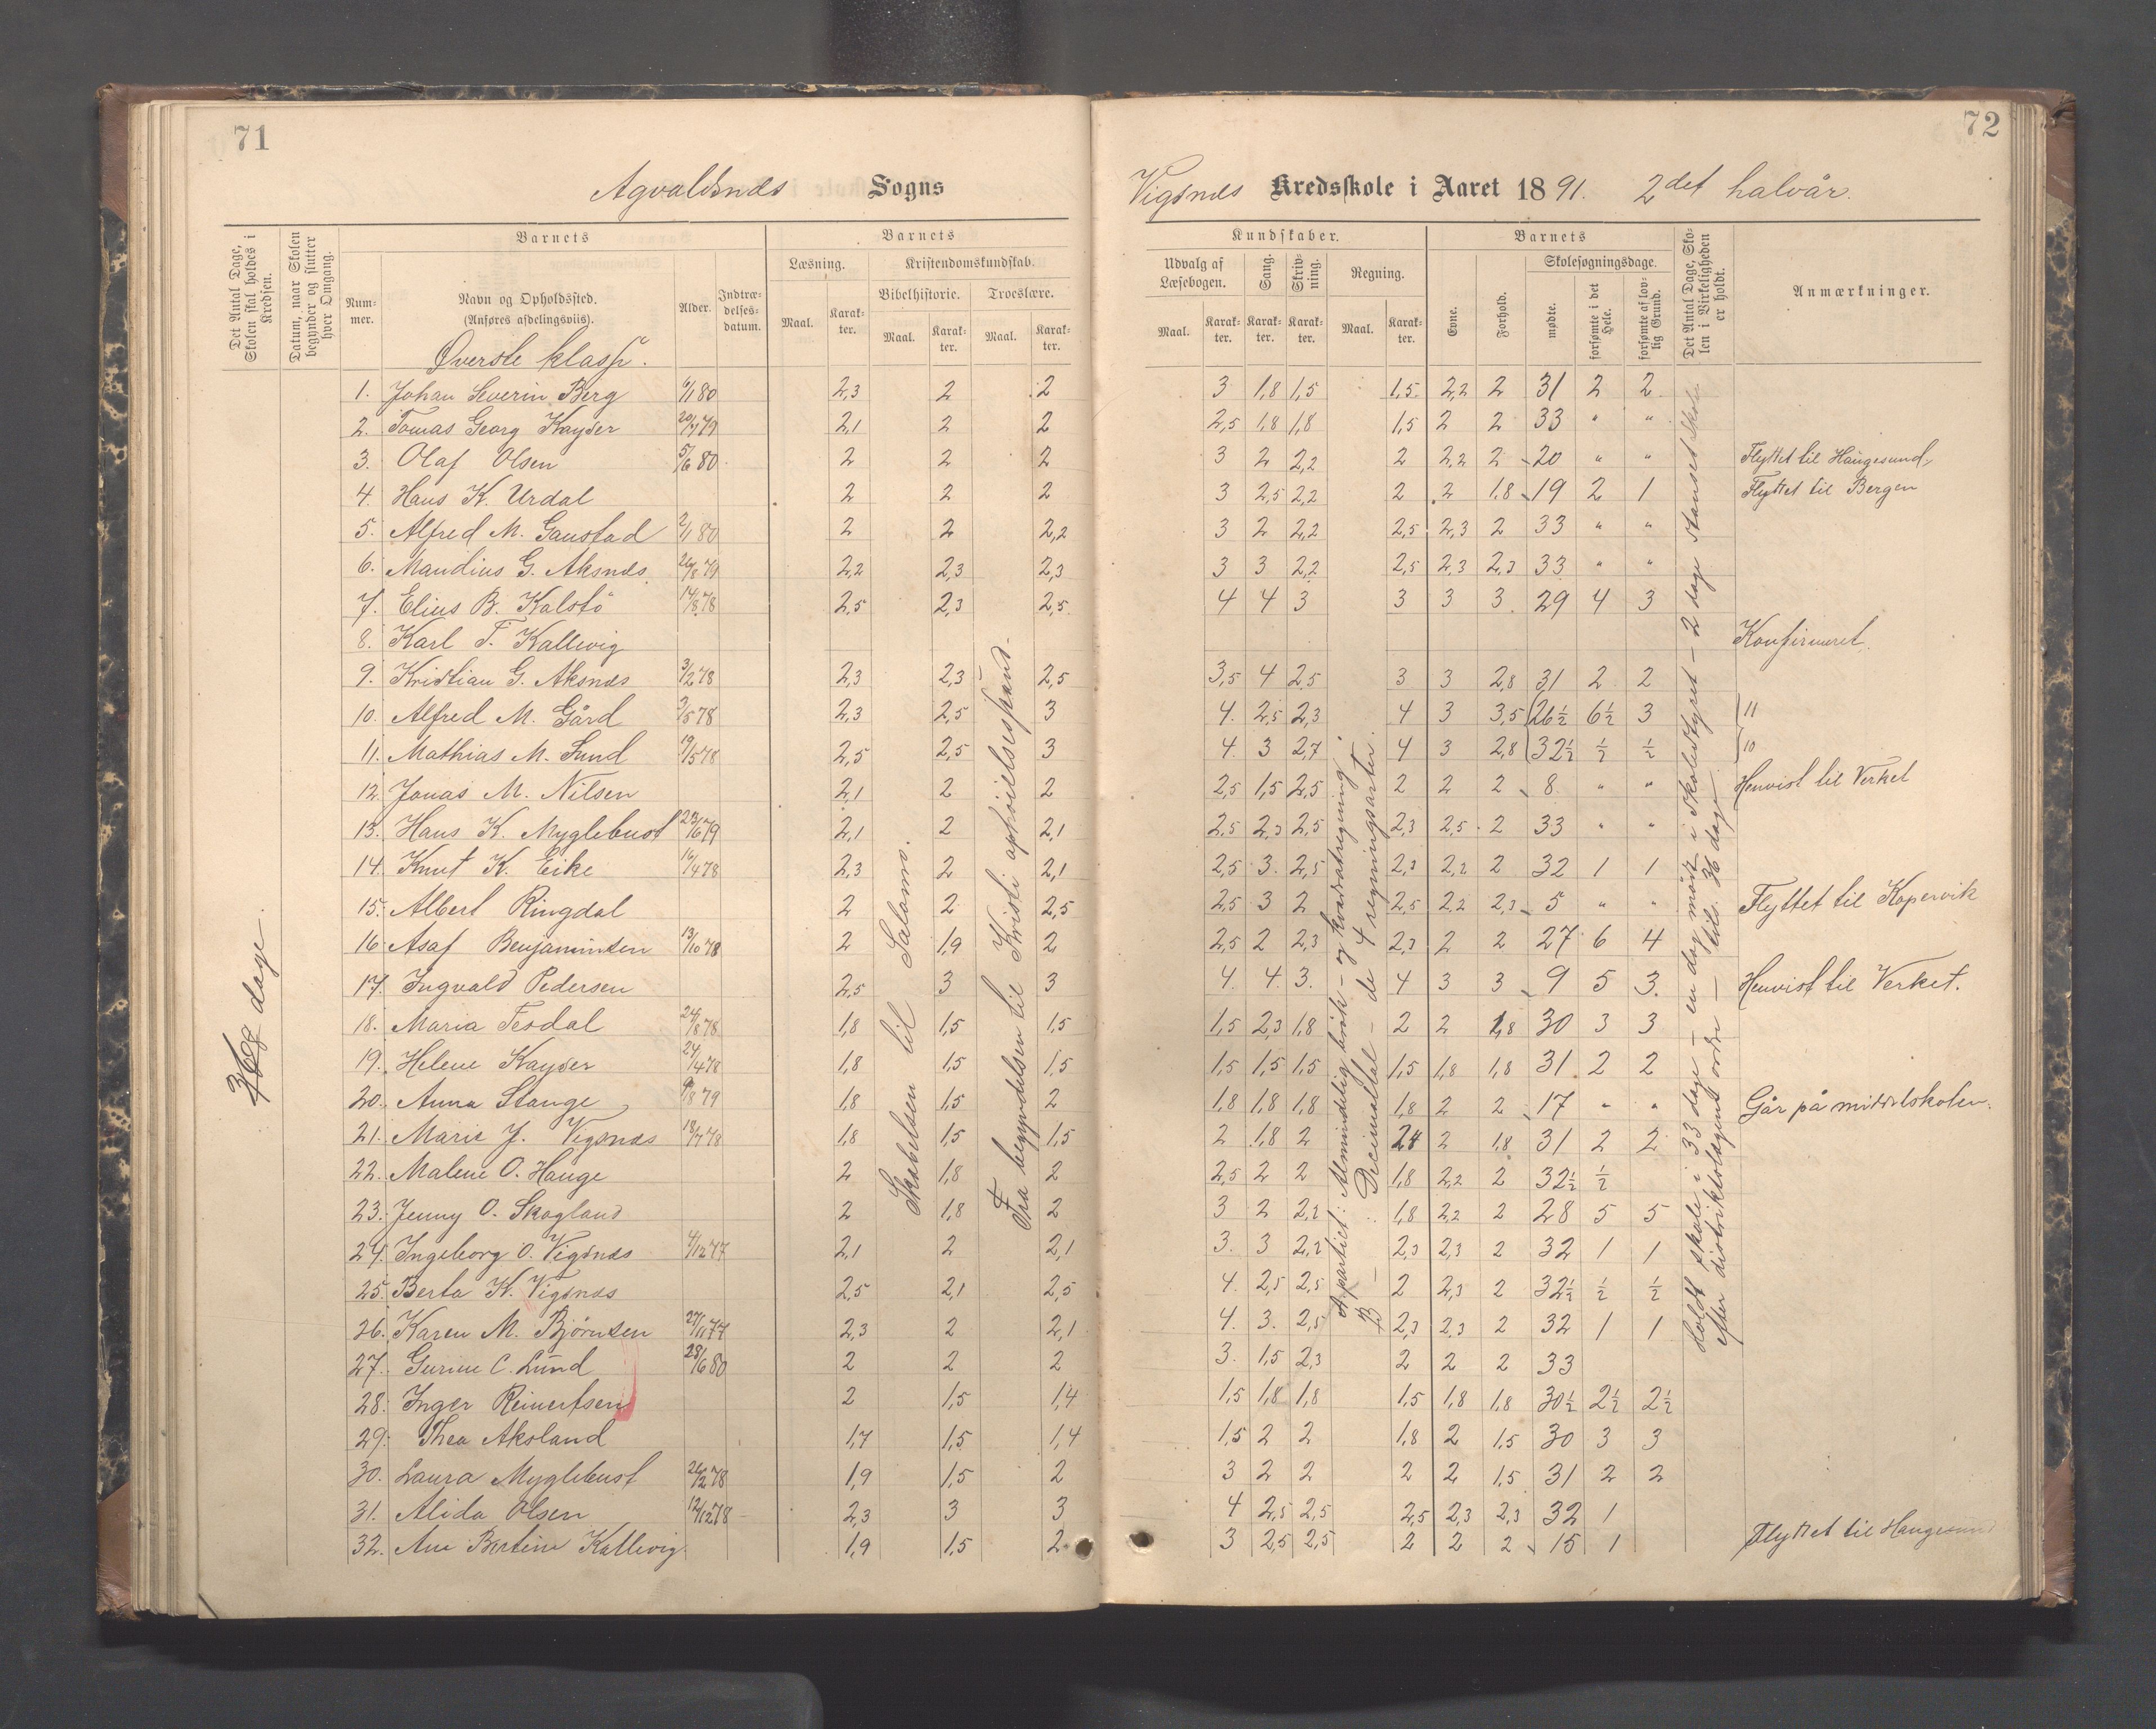 71
Agvaldsnæs Sogns
Det Antal Dage, Skolen skal holdes i Kredsen.
Datum, naar Skolen begynder og slutter hver Omgang.
Barnets
Nummer.
Navn og Opholdssted.
(Anføres afdelingsviis).
Alder.
Indtrædelsesdatum.
Barnets
Læsning.
Maal. Karakter.
Kristendomskundskab.
Bibelhistorie. Troeslære.
Maal. Karakter. Maal. Karakter.
Øverste klasse.
1. Johan Severin Berg 6/1 80 2,3 2 2
2. Tomas Georg Kayser 2,1 2 2
3. Olaf Olsen 5/6 80 2 2 2
4. Hans K. Urdal 2 2 2
5. Alfred M. Gaustad 2/1 80 2 2 2,2
6. Maudius G. Aksnæs 26/8 79 2,2 2,3 2,3
7. Elius B. Kalstö 14/8 78 2,5 2,3 2,5
8. Karl T. Kallevig
9. Kristian G. Aksnæs 3/12 78 2,3 2,3 2,5
10. Alfred M. Gård 2,3 2,5 3
11. Mathias M. Lund 19/5 78 2,5 2,5 3
12. Jonas M. Nilsen 2,1 2 2
13. Hans K. Myglebust 23/6 79 2,1 2 2,1
14. Knut K. Eike 16/4 78 2,3 2 2,1
15. Albert Ringdal 2 2 2,5
16. Asaf Benjaminsen 13/10 78 2 1,9 2
17. Ingvald Pedersen 2,5 3 3
18. Maria Tesdal 24/8 78 1,8 1,5 1,5
19. Helene Kayser 24/4 78 1,8 1,5 1,5
20. Anna Stange 9/8 79 1,8 1,5 2
21. Marie J. Vigsnæs 18/7 78 1,8 1,5 1,5
22. Malene O. Hauge 2 1,8 2
23. Jenny O. Skogland 2 1,8 2
24. Ingeborg O. Vigsnæs 4/12 77 2,1 2 2,1
25. Berta K. Vigsnæs 2,5 2,1 2,5
26. Karen M. Bjørnsen 27/11 77 2,3 2 2,1
27. Gurine C. Lund 28/6 80 2 2 2
28. Inger Reinertsen 2 1,5 1,4
29. Thea Aksland 1,7 1,5 1,4
30. Laura Myglebust 26/12 78 1,9 1,5 2
31. Alida Olsen 12/12 78 2,3 3 3
32. Ane Bertine Kallevig 1,9 1,5 2
36 dage
Skabelsen til Salomo.
Fra begyndelsen til Kristi ophöielsesstand.
72
Vigsnæs Kredsskole i Aaret 1891. 2det halvår.
Kundskaber.
Udvalg af Læsebogen.
Maal. Karakter.
Sang. Karakter.
Skrivning. Karakter.
Regning.
Maal. Karakter.
Barnets
Evne. Forhold.
Skolesøgningsdage.
mødte. forsømte i det Hele. forsømte af lovlig Grund.
Det Antal Dage, Skolen i Virkeligheden er holdt.
Anmærkninger.
3 1,8 1,5 1,5 2,2 2 31 2 2
2,5 1,8 1,8 1,5 2 2 33 " "
3 2 2,2 2 2,2 2 20 " " Flyttet til Haugesund
3 2,5 2,2 2 2 1,8 19 2 1 Flyttet til Bergen
3 2 2,2 2,5 2,3 2 33 " "
3 3 2,2 2,5 2,3 2,3 33 " "
4 4 3 3 3 3 29 4 3
Konfirmeret.
3,5 4 2,5 3 3 2,8 31 2 2
4. 2,5 2,3 4 3 3,5 26½ 6½ 3 11
4. 3 2,7 4 3 2,8 32½ ½ ½ 10
2,5 1,5 2,5 2 2 2 8 " " Henvist til Verket
2,5 2,3 2,5 2,3 2,5 2 33 " "
2,5 3. 2,5 2,3 2,2 2 32 1 1
2,5 3 2 2,5 2,2 2,3 5 " " Flyttet til Kopervik
2,5 2 2,3 2,3 2 2 27 6 4
4. 4. 3. 4 3 3 9 5 3. Henvist til Verket.
1,5 2,3 1,8 2 2 1,8 30 3 3
1,5 1,5 1,5 1,5 1,8 1,8 31 2 2
1,8 1,8 1,8 1,8 2 2 17 " " Går på middelskolen.
2 1,8 2 2 1,8 31 2 2
2,5 2 2 1,8 2,2 2 32½ ½
3 2 2,2 1,8 2,2 2 28 5 5
3. 3 2,2 2,3 2,3 2 32 1 1
4. 2,5 2,5 2 2,3 2 32½ ½ ½
4. 3. 2,5 2,3 2,3 2 32 1 1
3. 1,5 2,3 2 2 2 33
1,5 1,8 1,8 1,5 1,8 1,8 30½ 2½ 2½
1,5 2 2 1,8 2 1,5 30 3 3
3 2 2 2 2 1,5 31 2 2
4 2,5 2,5 2,5 2,3 2,3 32 1
3 2,5 2,5 2 2 2 15 1 Flyttet til Haugesund
A partiet: Almindelig brök - og kvadratregning.
B — Decimaltal - de 4 regningsarter.
Holdt skole i 33 dage - en dag möde i skolestyret - 2 dage stanset skole
efter distriktslægens ordre — tils. 36 dage.